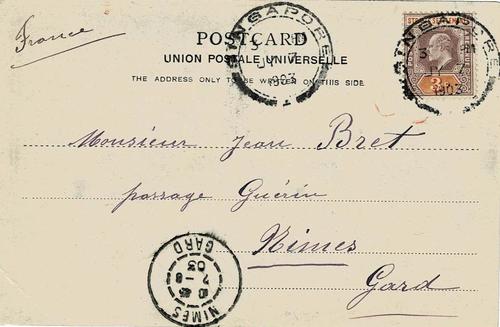 France
POSTCARD
UNION POSTALE UNIVERSELLE
THE ADDRESS ONLY TO BE WRITTEN ON THIS SIDE
SINGAPORE
1903
SINGAPORE
1903
Monsieur Jean Bret
passage Guérin
Nimes
Gard
NIMES
7-8
03
GARD